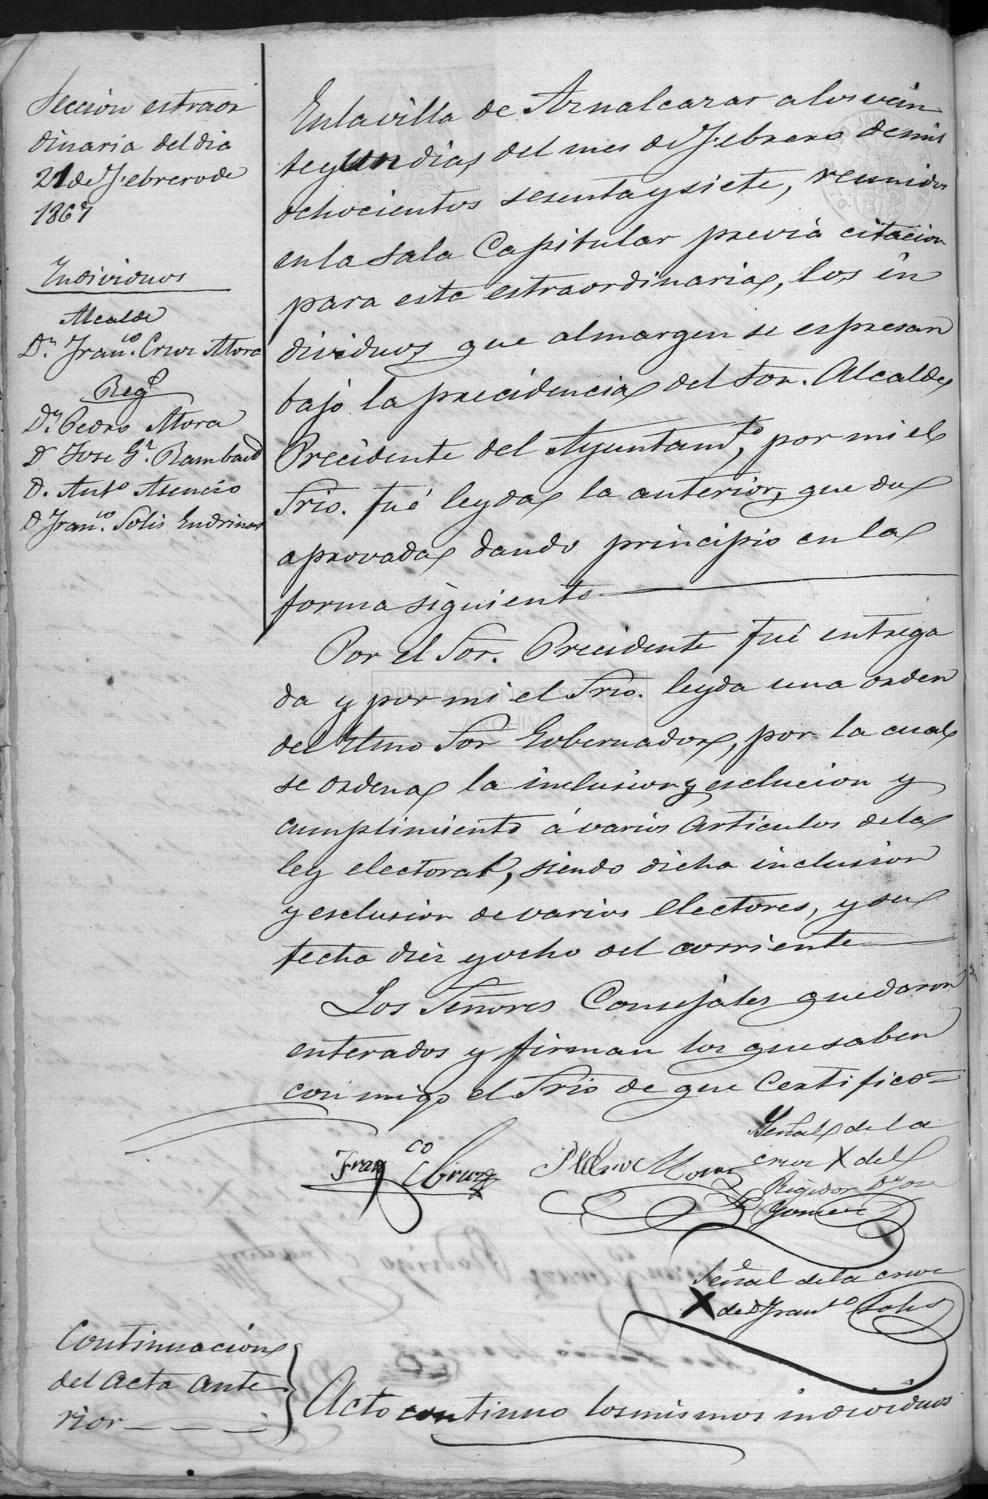 Seccion estraor
dinaria del dia
21 de Febrero de
1867
Individuos
Alcalde
Dn. Franco. Cruz Mora
Regs
Dn. Pedro Mora
Dn Jose Ga. Rambaud
D. Anto Asencio
D Franco. Solis Endrinas
En la villa de Aznalcazar a los vein
te y un dias del mes de Febrero de mil
ochocientos sesenta y siete, reunidos
en la sala Capitular previa citacion
para esta estraordinaria, los in
dividuos que al margen se espresan
bajo la precidencia del Sor. Alcalde
Precidente del Ayuntamto, por mi el
Srio. fué leyda la anterior, que da
aprovada dando principio en la
forma siguiente
Por el Sor. Precidente fué entrega
da y por mi el Srio. leyda una orden
del Iltmo Sor Gobernador, por la cual
se ordena la inclusion y esclucion y
cumplimiento á varios articulos de la
ley electoral, siendo dicha inclusion
y esclusion de varios electores, y su
fecha diez y ocho del corriente
Los Señores Consejales quedaron
enterados y firman los que saben
con migo el Srio de que Certifico=
Franco Cruz
Pedro Mora
Señal de la
cruz X del
Regidor Dn Jose
Gomez
Señal de la cruz
X de D Franco Solis
Continuacion
del acta ante
rior
Acto continuo los mismos individuos